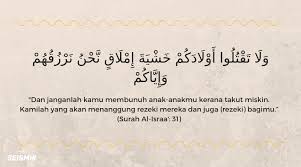 وَلَا تَقْتُلُوا أَوْلَادَكُمْ خَشْيَةَ إِمْلَاقٍ نَّحْنُ نَرْزُقُهُمْ
وَإِيَّاكُمْ
"Dan janganlah kamu membunuh anak-anakmu kerana takut miskin.
Kamilah yang akan menanggung rezeki mereka dan juga (rezeki) bagimu."
(Surah Al-Israa': 31)